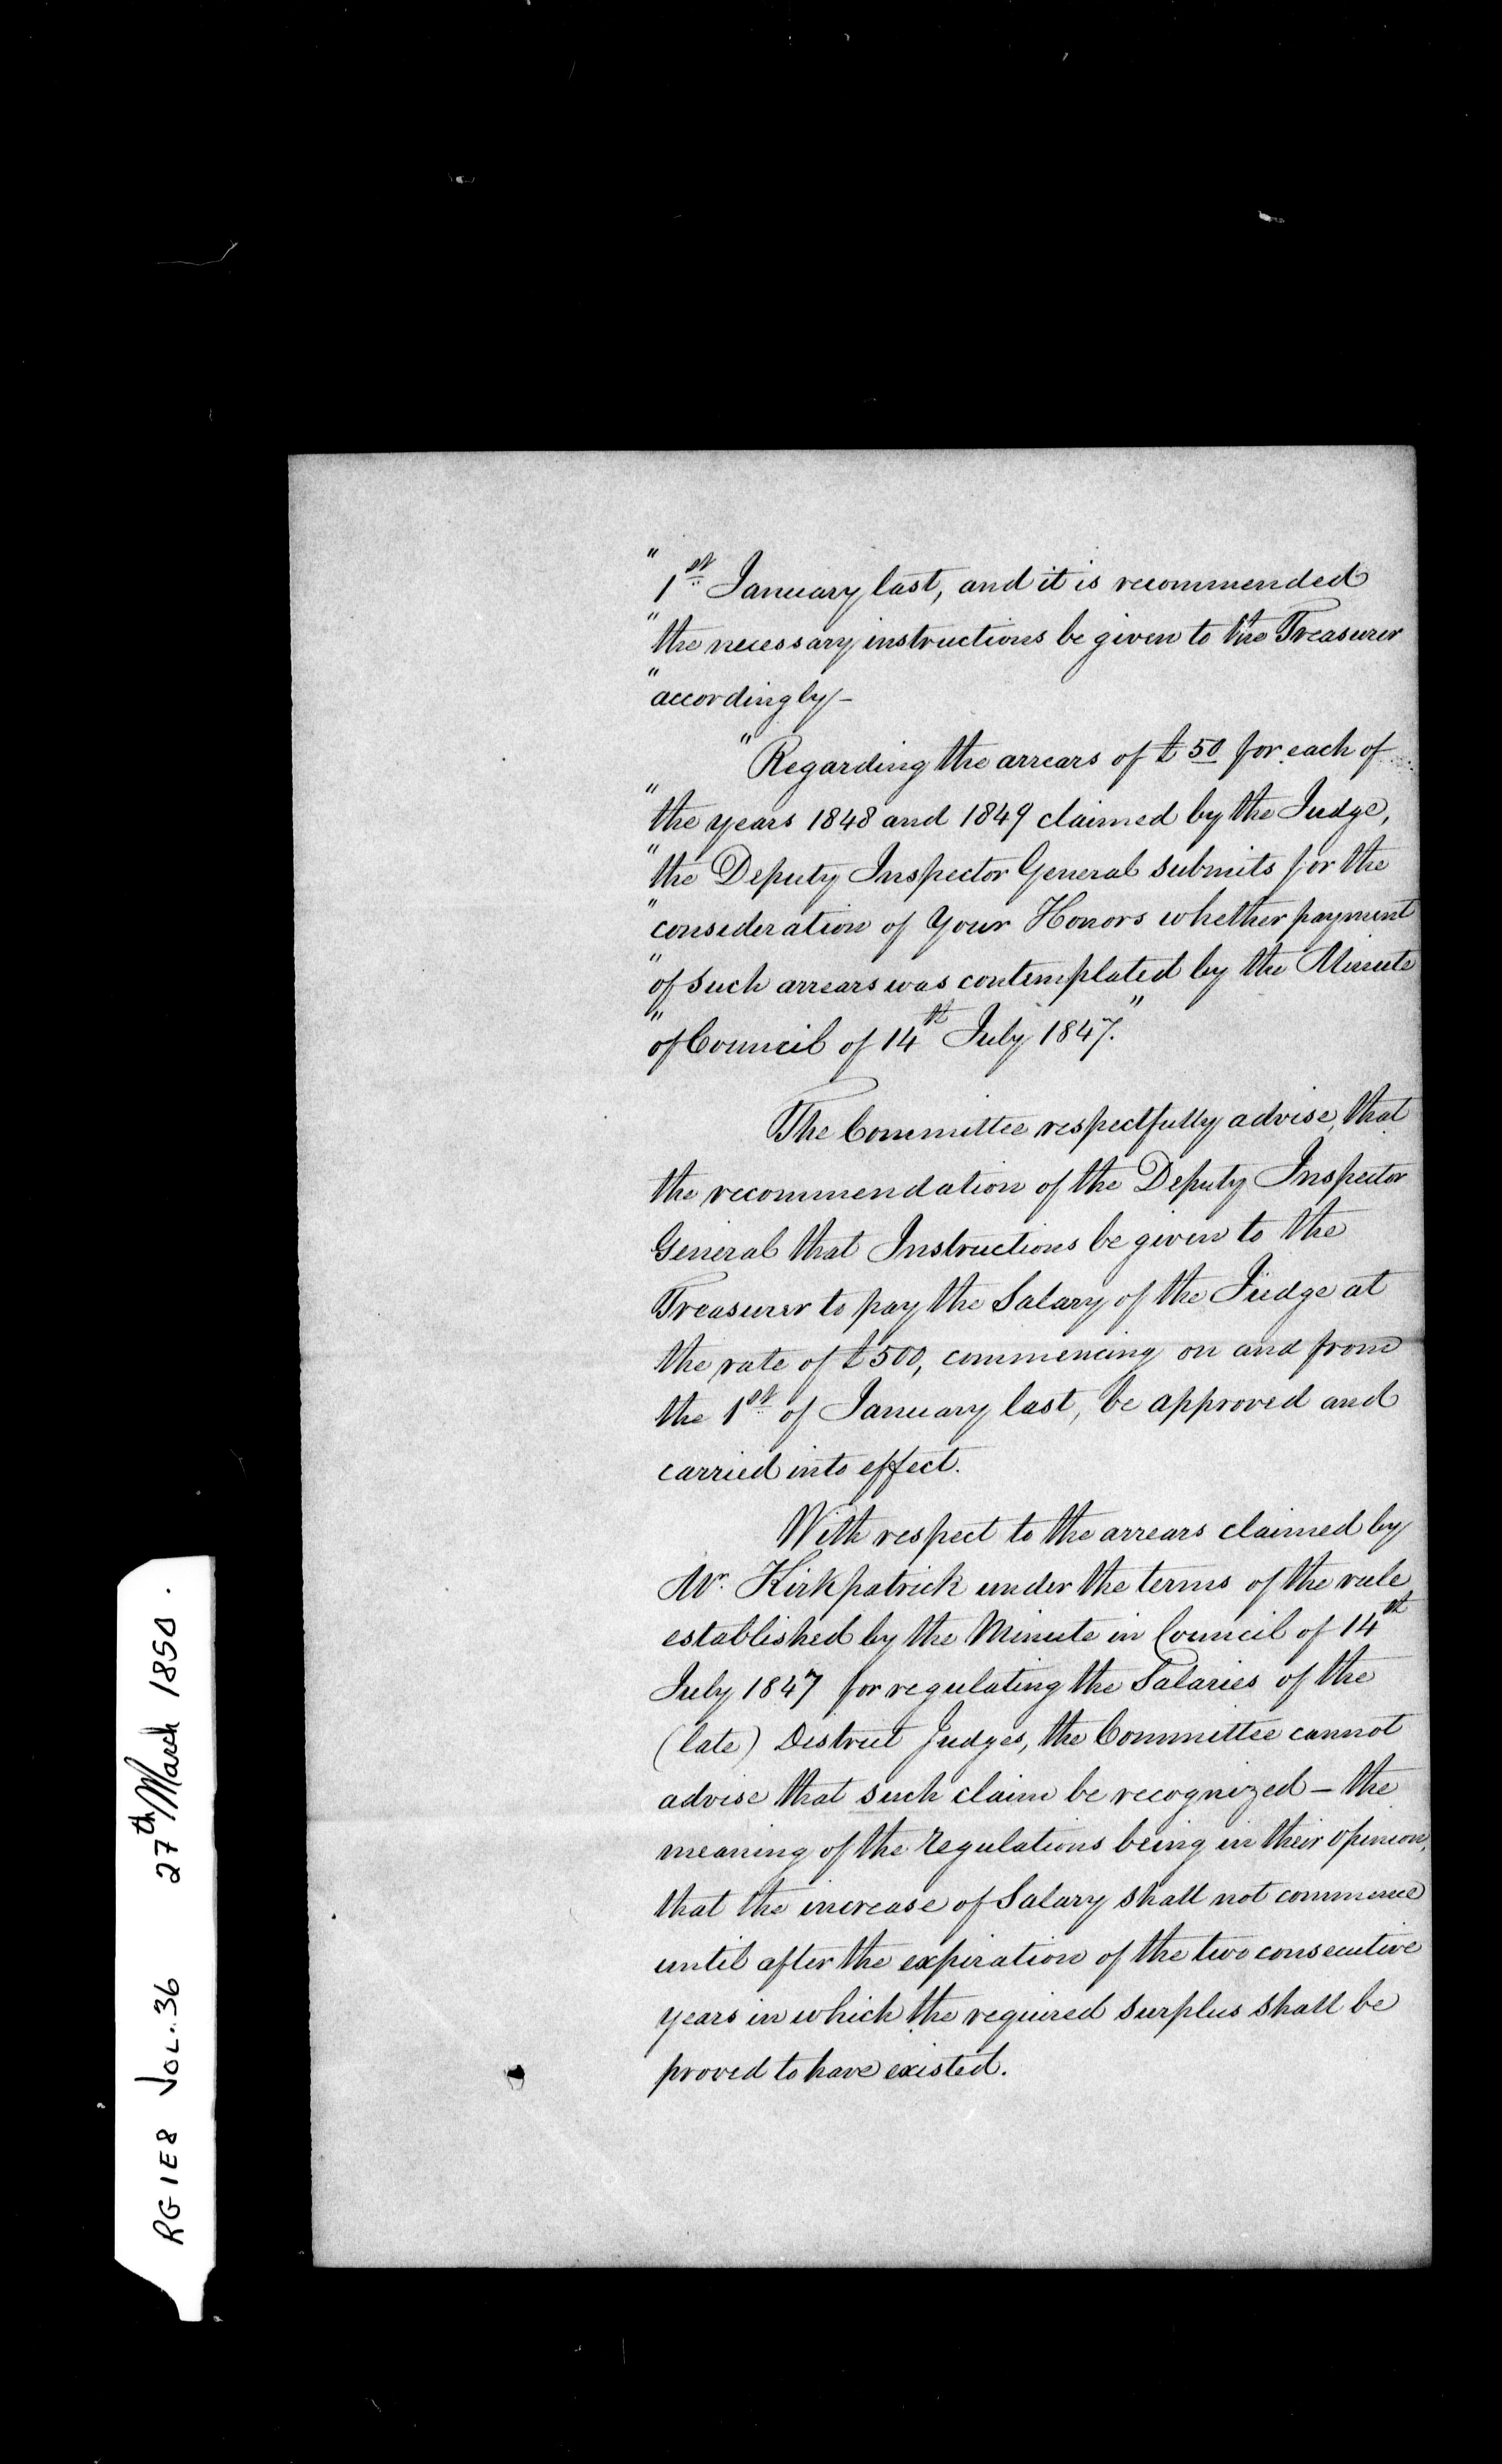 " 1st January last, and it is recommended
" the necessary instructions be given to the Treasurer
" accordingly –
" Regarding the arrears of £50 for each of
" the years 1848 and 1849 claimed by the Judge,
" the Deputy Inspector General submits for the
" consideration of Your Honors whether payment
" of such arrears was contemplated by the Minute
" of Council of 14th July 1847."
The Committee respectfully advise, that
the recommendation of the Deputy Inspector
General that Instructions be given to the
Treasurer to pay the Salary of the Judge at
the rate of £500, commencing on and from
the 1st of January last, be approved and
carried into effect.
With respect to the arrears claimed by
Mr. Kirkpatrick under the terms of the rule
established by the Minute in Council of 14th
July 1847 for regulating the Salaries of the
(late) District Judges, the Committee cannot
advise that such claim be recognized – the
meaning of the regulations being in their opinion,
that the increase of Salary shall not commence
until after the expiration of the two consecutive
years in which the required surplus shall be
proved to have existed.
RG 1 E8 VOL. 36 27th March 1850.